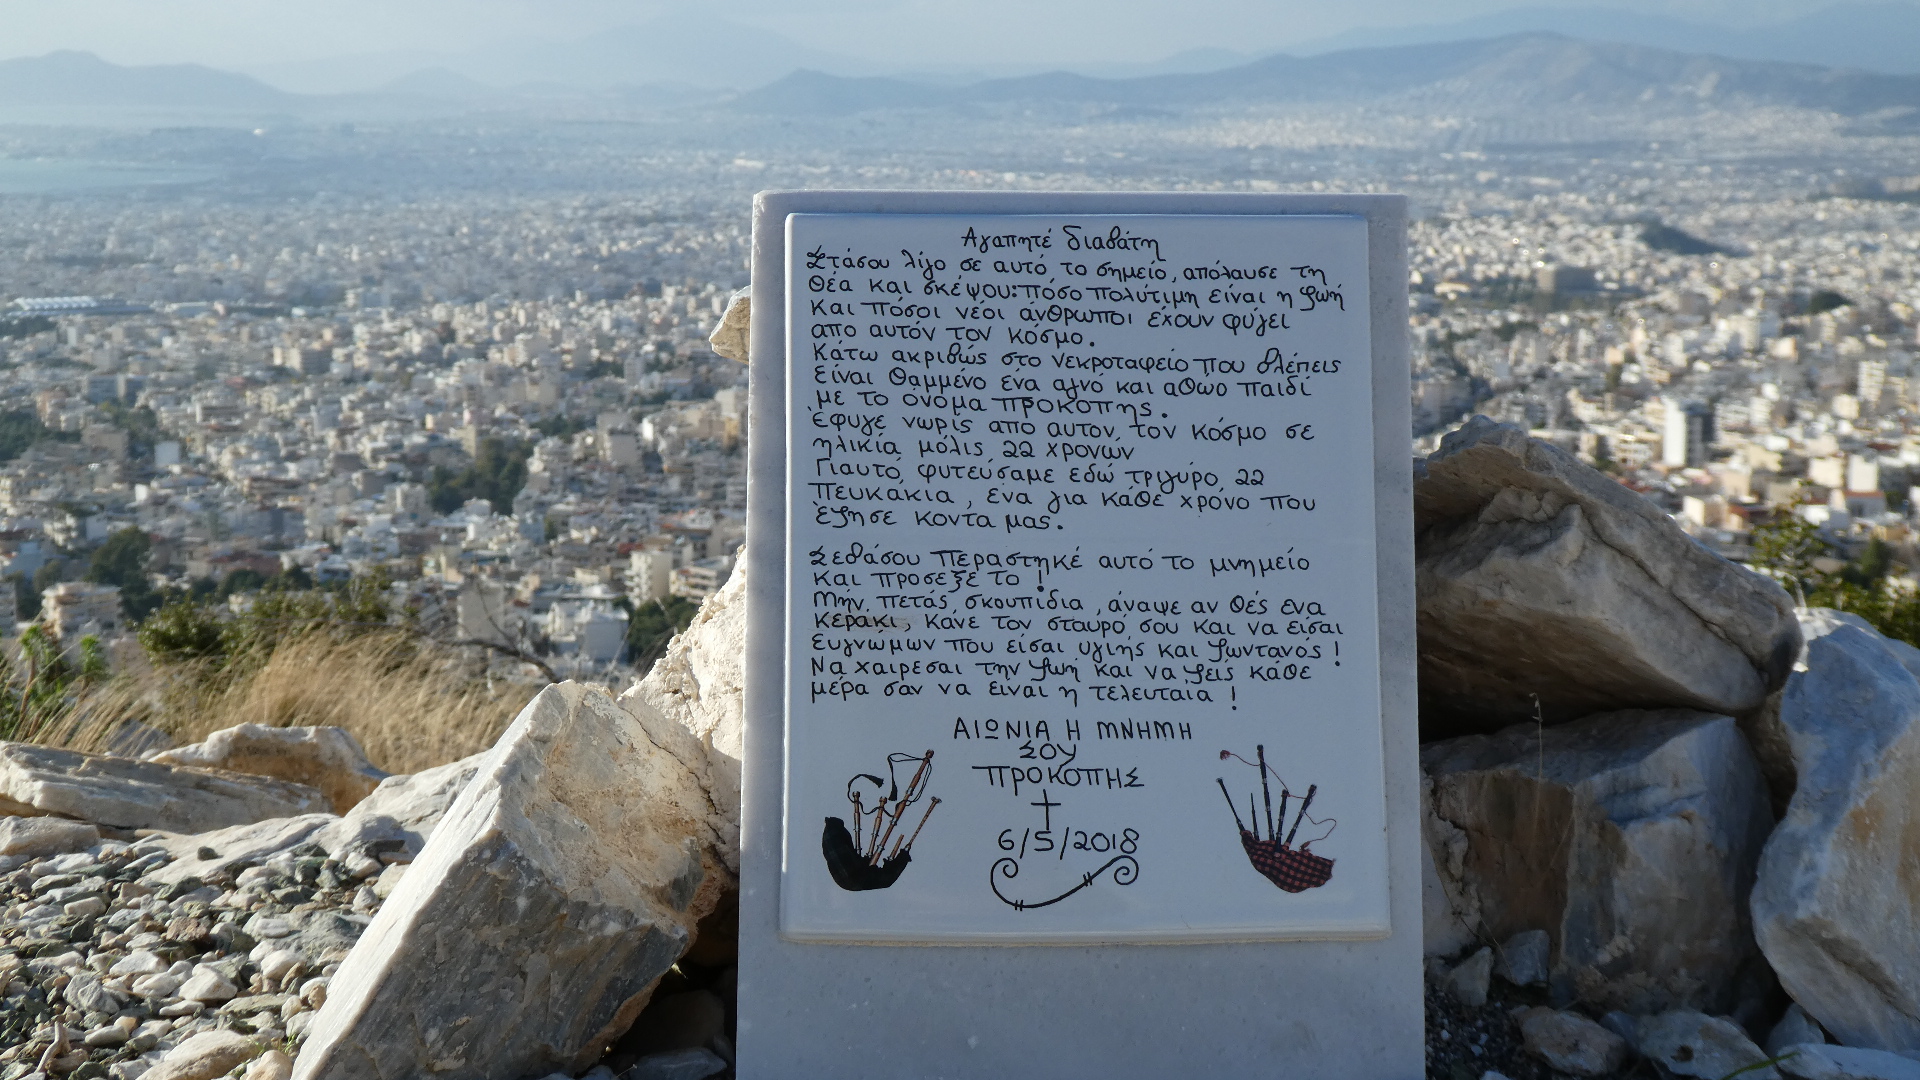 Αγαπητέ διαβάτη
Στάσου λίγο σε αυτό, το σημείο, απόλαυσε τη
θέα και σκέψου: πόσο πολύτιμη είναι η ζωή
και πόσοι νέοι άνθρωποι έχουν φύγει
απο αυτόν τον κόσμο.
Κάτω ακριβώς στο νεκροταφείο που βλέπεις
είναι θαμμένο ένα αγνό και αθώο παιδί
με το όνομα Προκόπης.
Έφυγε νωρίς απο αυτον, τον κόσμο σε
ηλικία μόλις 22 χρόνων
Γιαυτό, φυτεύσαμε εδώ τριγύρο, 22
πευκάκια, ένα για κάθε χρόνο που
έζησε κοντα μας.
Σεβάσου περαστηκέ αυτό το μνημείο
και προσεξε το!
Μήν πετάς σκουπίδια, άναψε αν θές ενα
κεράκι, κάνε τον σταυρό, σου και να είσαι
ευγνώμων που είσαι υγιής και ζωντανός!
Να χαίρεσαι την ζωή και να ζείς κάθε
μέρα σαν να είναι η τελευταία!
ΑΙΩΝΙΑ Η ΜΝΗΜΗ
ΣΟΥ
ΠΡΟΚΟΠΗΣ
6/5/2018